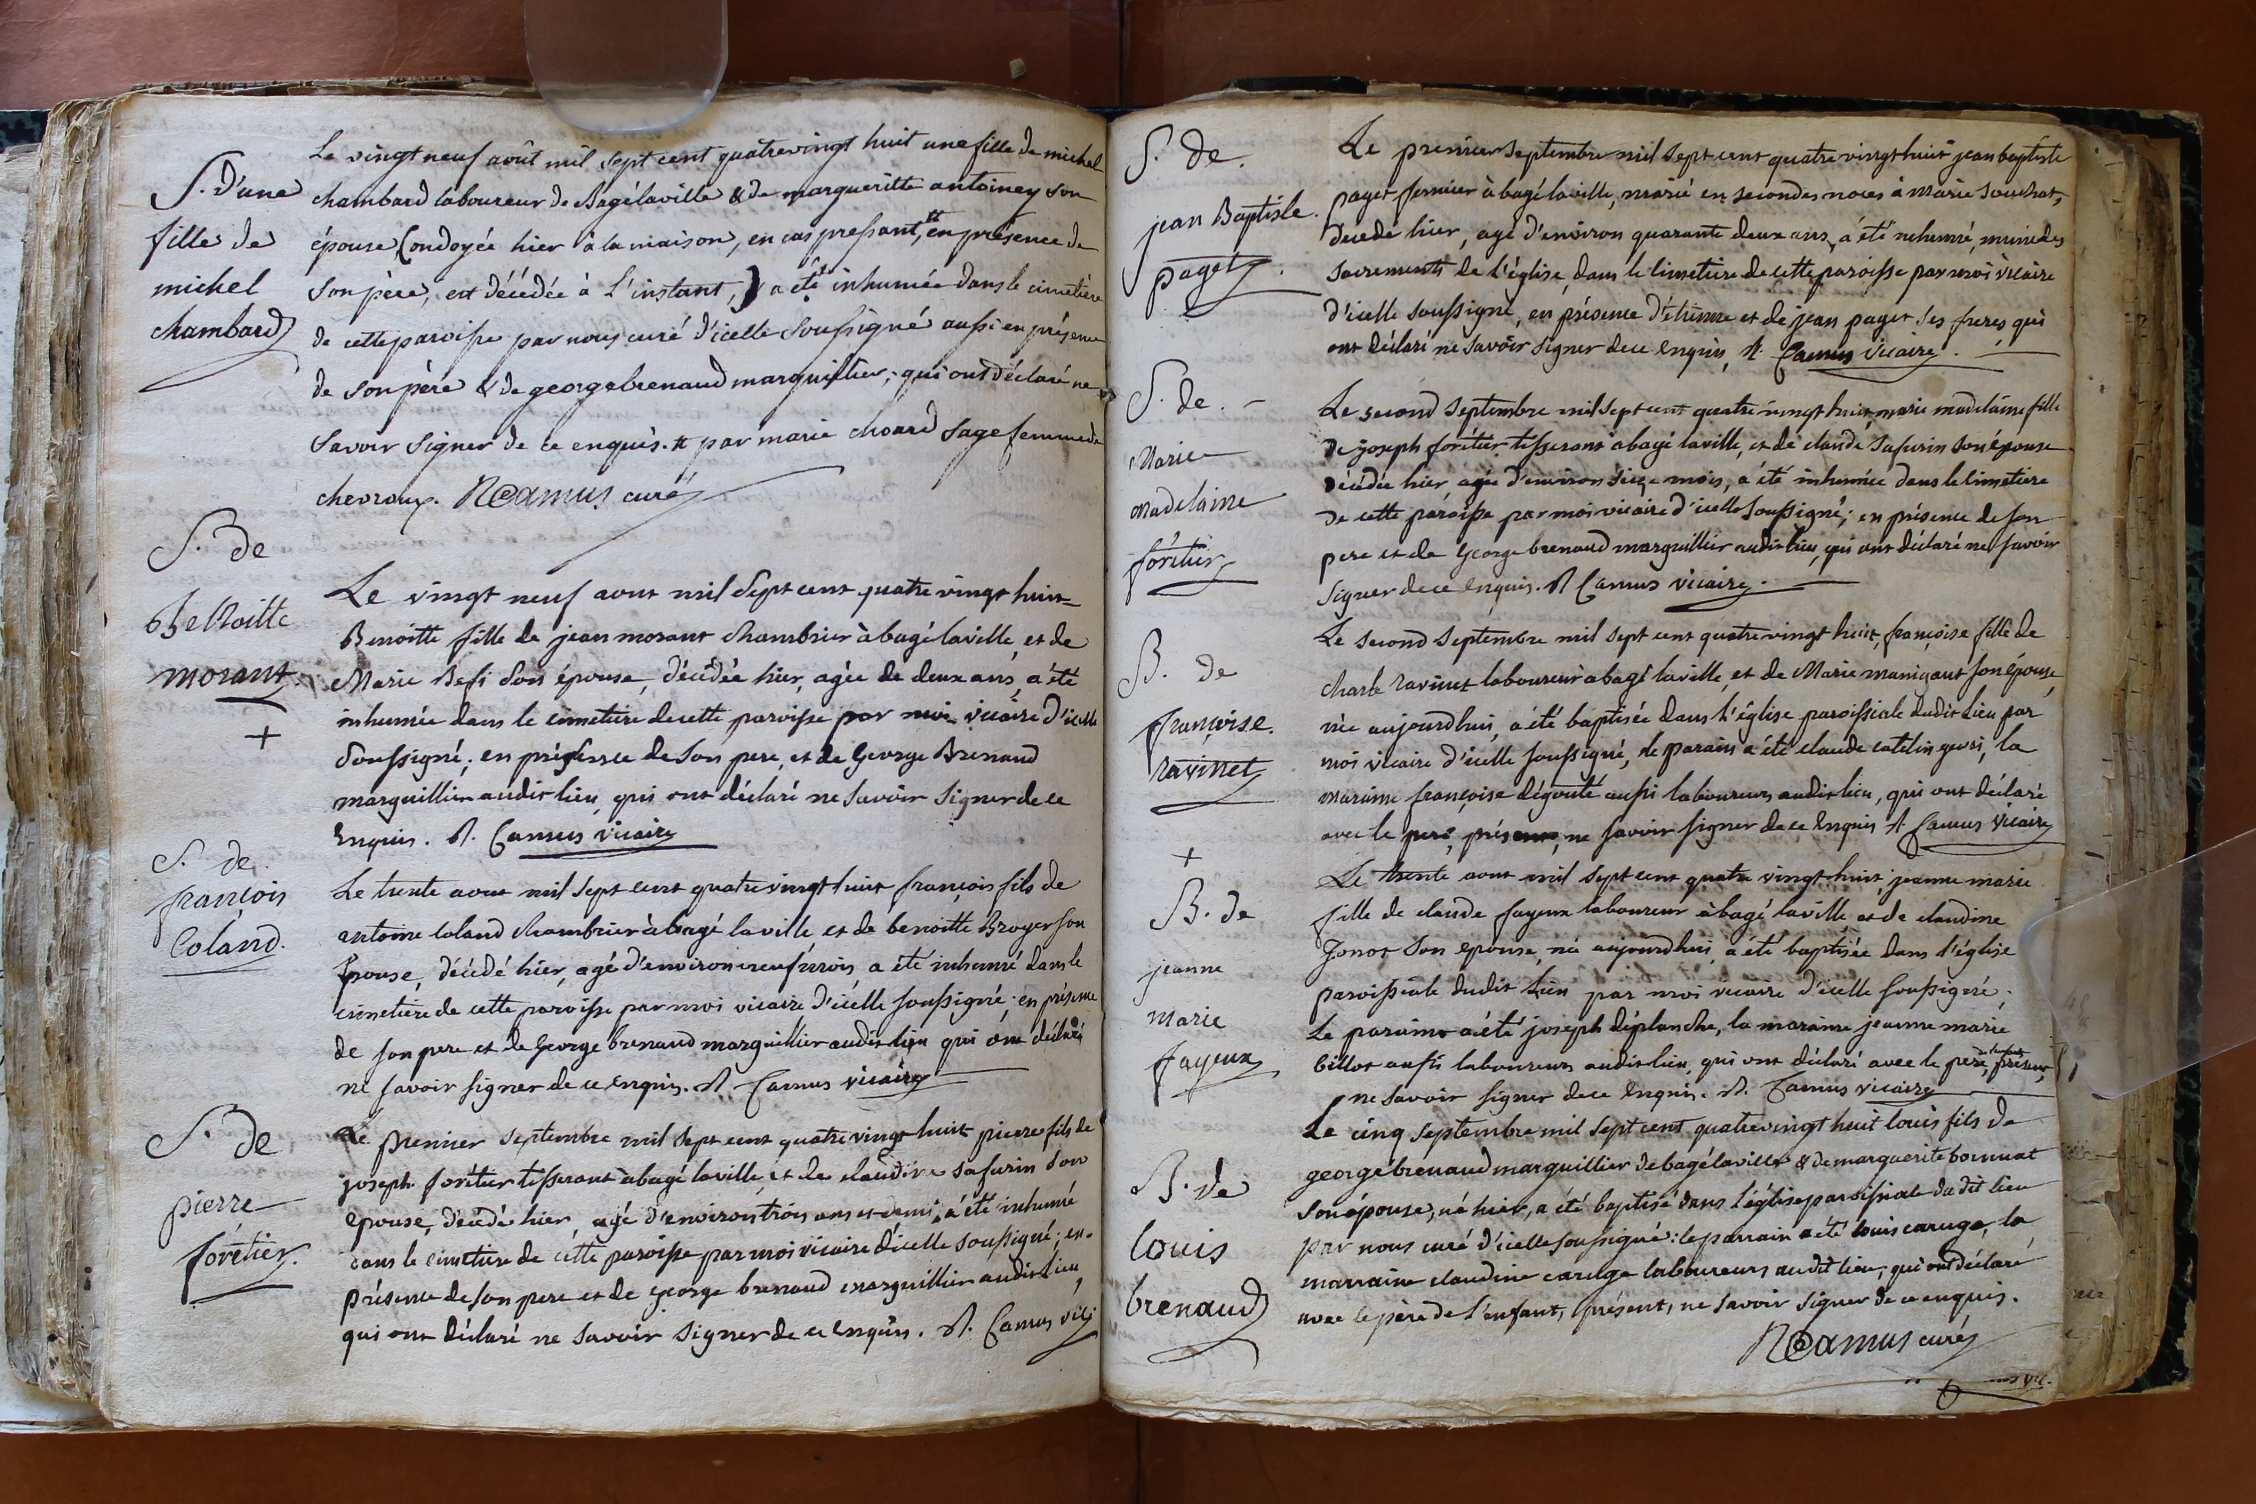 S. d'une
fille de
michel
chambard
Le vingt neuf août mil sept cent quatrevingt huit une fille de michel
chambard laboureur de Bagélaville & de margueritte antoiney son
épouse (ondoyée hier à la maison, en cas pressant, # en présence de
son père, est décédée à L'instant,) a été inhumée dans le cimetière
de cette paroisse par nous curé d'icelle soussigné aussi en présence
de son père & de george brenaud marguillier, qui ont déclaré ne
savoir signer de ce enquis. # par marie choard sage femme de
chevroux. Camus curé
S. de
Benoitte
morant
+
Le vingt neuf aout mil sept cent quatre vingt huit
Benoitte fille de jean morant chambrier à bagé laville, et de
Marie Besi son épouse, décédée hier, agée de deux ans, a été
inhumée dans le cimetiere de cette paroisse par moi vicaire d'icelle
soussigné; en présence de son pere, et de George Brenaud
marguillier audit lieu, qui ont déclaré ne savoir signer de ce
Enquis. Camus vicaire
S. de
françois
Coland.
Le trente aout mil sept cent quatre vingt huit françois fils de
antoine Coland chambrier à bagé laville et de benoitte Broyer son
Epouse, décédé hier, agé d'environ neuf mois a été inhumé dans le
cimetiere de cette paroisse par moi vicaire d'icelle soussigné; en présence
de son pere et de George brenaud marguillier audit lieu qui ont déclaré
ne savoir signer de ce enquis. Camus vicaire
S. de
pierre
forêtier.
Le premier septembre mil sept cent quatre vingt huit pierre fils de
joseph forêtier tisserant à bagé laville, et de claudine safurin son
epouse, décédé hier, agé d'environ trois ans et demi, a été inhumé
dans le cimetiere de cette paroisse par moi vicaire d'icelle soussigné; en
présence de son pere et de george brenaud marguillier audit lieu,
qui ont déclaré ne savoir signer de ce enquis. Camus
S. de.
jean Baptiste.
paget.
Le premier septembre mil sept cent quatre vingt huit jean baptiste
paget fermier à bagé laville, marié en secondes noces à Marie Souchat,
décédé hier, agé d'environ quarante deux ans, a été inhumé, muni des
sacrements de l'église, dans le cimetiere de cette paroisse par moi vicaire
d'icelle soussigné, en présence d'étienne et de jean paget ses freres, qui
ont déclaré ne savoir signer de ce Enquis. Camus vicaire.
S. de. -
Marie
Madelaine
forêtier
Le second septembre mil sept cent quatre vingt huit, marie madelaine fille
de joseph forêtier tisserant a bagé laville, et de claude safurin son épouse
décédée hier, agée d'environ seize mois, a été inhumée dans le cimetiere
de cette paroisse par moi vicaire d'icelle soussigné; en présence de son
pere et de George brenaud marguillier audit lieu, qui ont déclaré ne savoir
signer de ce enquis. Camus vicaire.
B. de
françoise.
Ravinet
Le second septembre mil sept cent quatre vingt huit, françoise fille de
charle ravinet laboureur a bagé laville, et de Marie manigant son épouse,
née aujourdhui, a été baptisée dans l'église paroissiale dudit Lieu par
moi vicaire d'icelle soussigné, le parain a été claude catelin la
maraine françoise dégouté aussi laboureurs audit lieu, qui ont déclaré
avec le pere, présent, ne savoir signer de ce enquis Camus vicaire
+
B. de
jeanne
Marie
fayeux
Le trente aout mil sept cent quatre vingt huit, jeanne marie
fille de claude fayeux laboureur à bagé laville et de claudine
Jonot son epouse, né aujourdhui, a été baptisée dans l'église
paroissiale dudit Lieu par moi vicaire d'icelle soussigné.
Le parain a été joseph déplanche, la maraine jeanne marie
billot aussi laboureurs audit lieu, qui ont déclaré avec le pere, présent,
ne savoir signer de ce Enquis. Camus vicaire
B. de
louis
brenaud
Le cinq septembre mil sept cent quatrevingt huit louis fils de
george brenaud marguillier de bagélaville & de marguerite bonnat
son épouse, né hier, a été baptisé dans L'église paroissiale du dit lieu
par nous curé d'icelle soussigné: le parrain a été louis caruge, la
marraine claudine caruge laboureurs audit lieu, qui ont déclaré,
avec le père de l'enfant, présent, ne savoir signer de ce enquis.
Camus curé